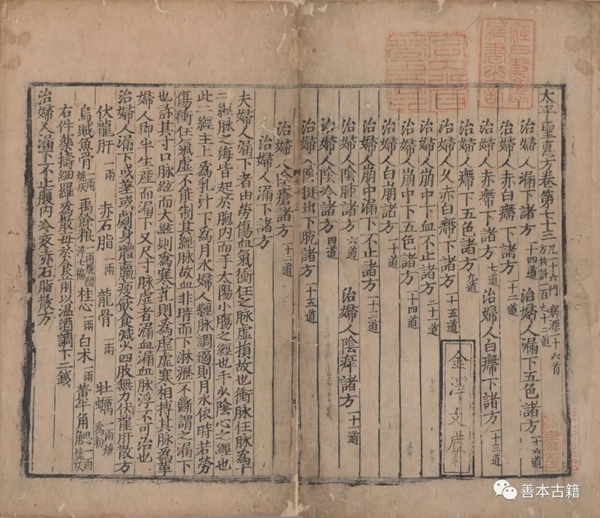 太平聖惠方卷第七十三
治婦人漏下諸方 十四道 治婦人漏下五色諸方 十六道
治婦人赤白癊下諸方 治婦人白癊下諸方 十三道
治婦人赤癊下諸方 七道
治婦人癊下五色諸方
治婦人久赤白癊下諸方 十二道
治婦人崩中下五色諸方 十四道
治婦人崩中下血不止諸方
治婦人白崩諸方 十二道
治婦人崩中漏下諸方 十五道
治婦人陰腫諸方 六道 治婦人陰痒諸方
治婦人陰冷諸方 四道
治婦人陰挺出下脫諸方 十五道
治婦人陰瘡諸方 十二道
治婦人漏下諸方
夫婦人漏下者由勞傷血氣衝任之脉虛損故也衝脉任脉為十
二經脉之海皆起於胞內而手太陽小腸之經也手少陰心之經也
此二經主上為乳汁下為月水婦人經脉調適則月水依時若勞
傷衝任氣虛不能制其經脉故血非時而下淋瀝不斷謂之漏下
也診其寸口脉弦而大弦則為減大則為芤減即為寒芤則為虛虛寒相搏其脉為革
婦人即半生產而漏下又尺寸脉虛者漏血漏血脉浮不可治也
治婦人漏下或瘥或劇身體羸瘦飲食減少四肢無力伏龍肝散方
伏龍肝 一兩 赤石脂 一兩 龍骨 一兩 牡蠣
烏賊魚骨 禹餘糧 桂心 一兩 白朮 一兩 黃牛角䚡
右件藥擣細羅為散每於食前以溫酒調下二錢
治婦人漏下不止腹內冷疼赤石脂散方
金澤文庫
善本古籍